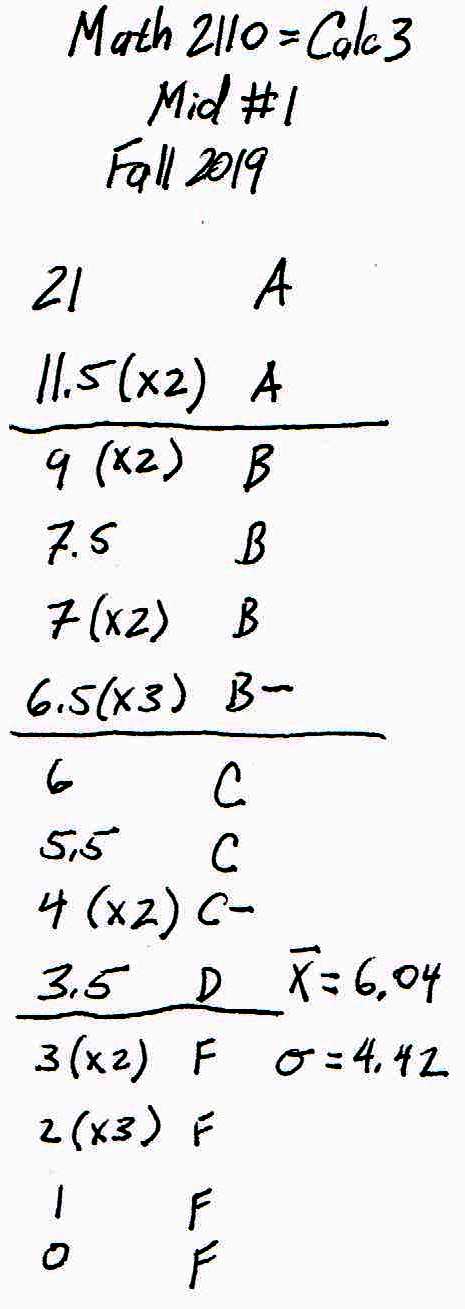 Math 2110 = Calc 3
Mid #1
Fall 2019
21 A
11.5 (x2) A
9 (x2) B
7.5 B
7 (x2) B
6.5 (x3) B-
6 C
5.5 C
4 (x2) C-
3.5 D x̄ = 6.04
3 (x2) F σ = 4.42
2 (x3) F
1 F
0 F